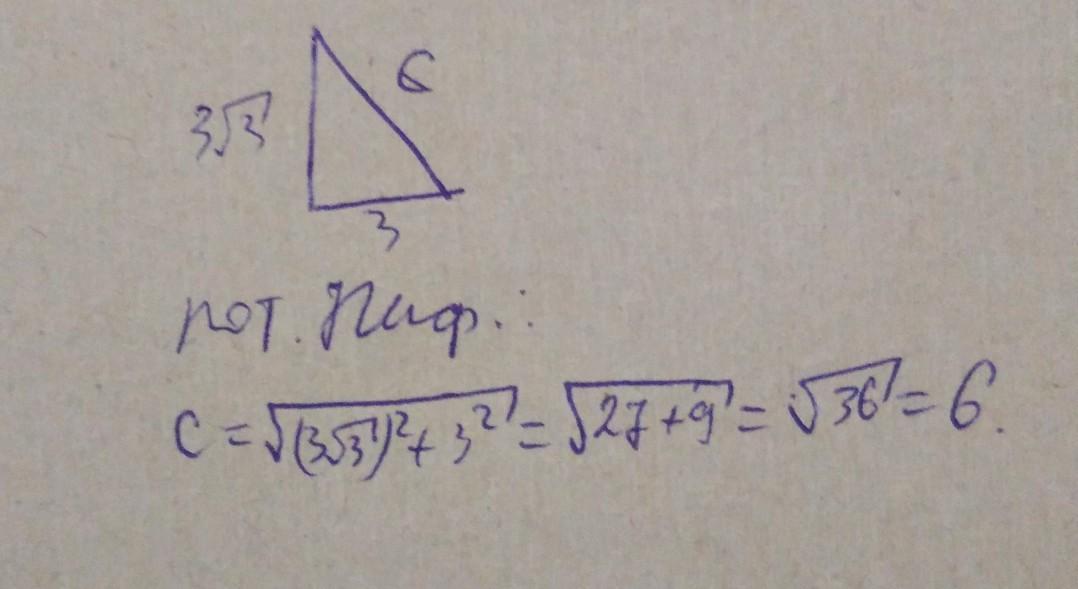 6
3√3
3
по т. Пиф.:
C = √((3√3)² + 3²) = √(27 + 9) = √36 = 6.